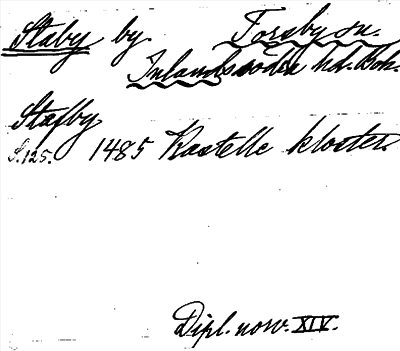 Staby by. Torsby sn.
Inlands södra hd. Boh.
Stafby
S. 125. 1485 Kastelle kloster.
Dipl. norv. XIV.